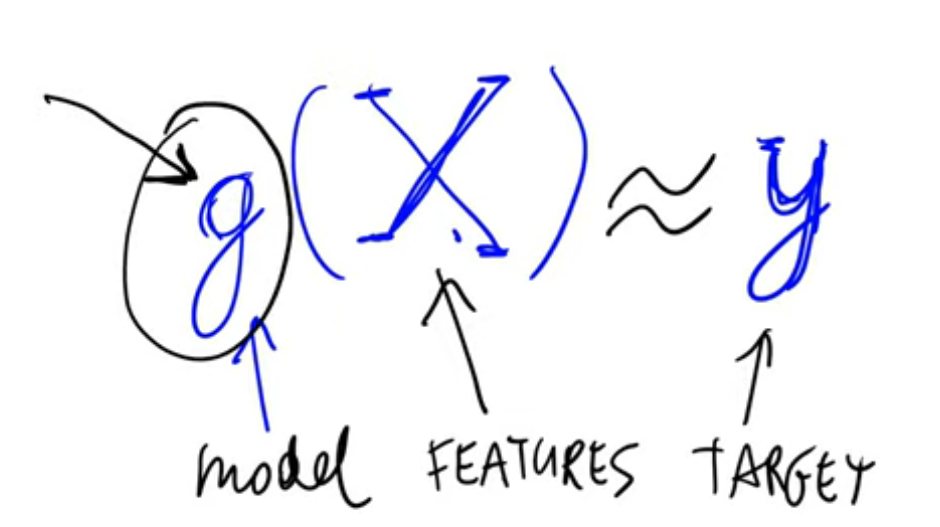 g(X) ≈ y
model FEATURES TARGET